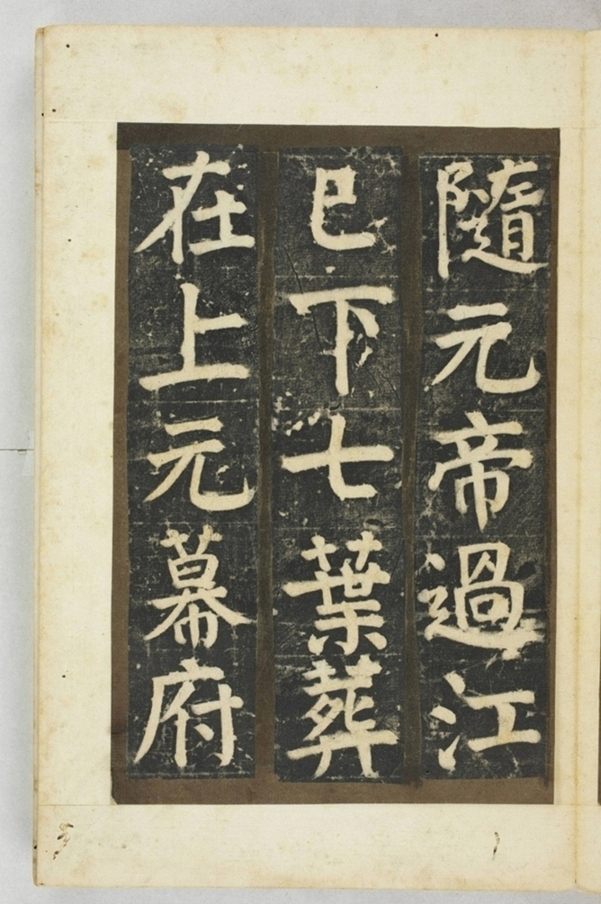 隨元帝過江
已下七葉葬
在上元幕府